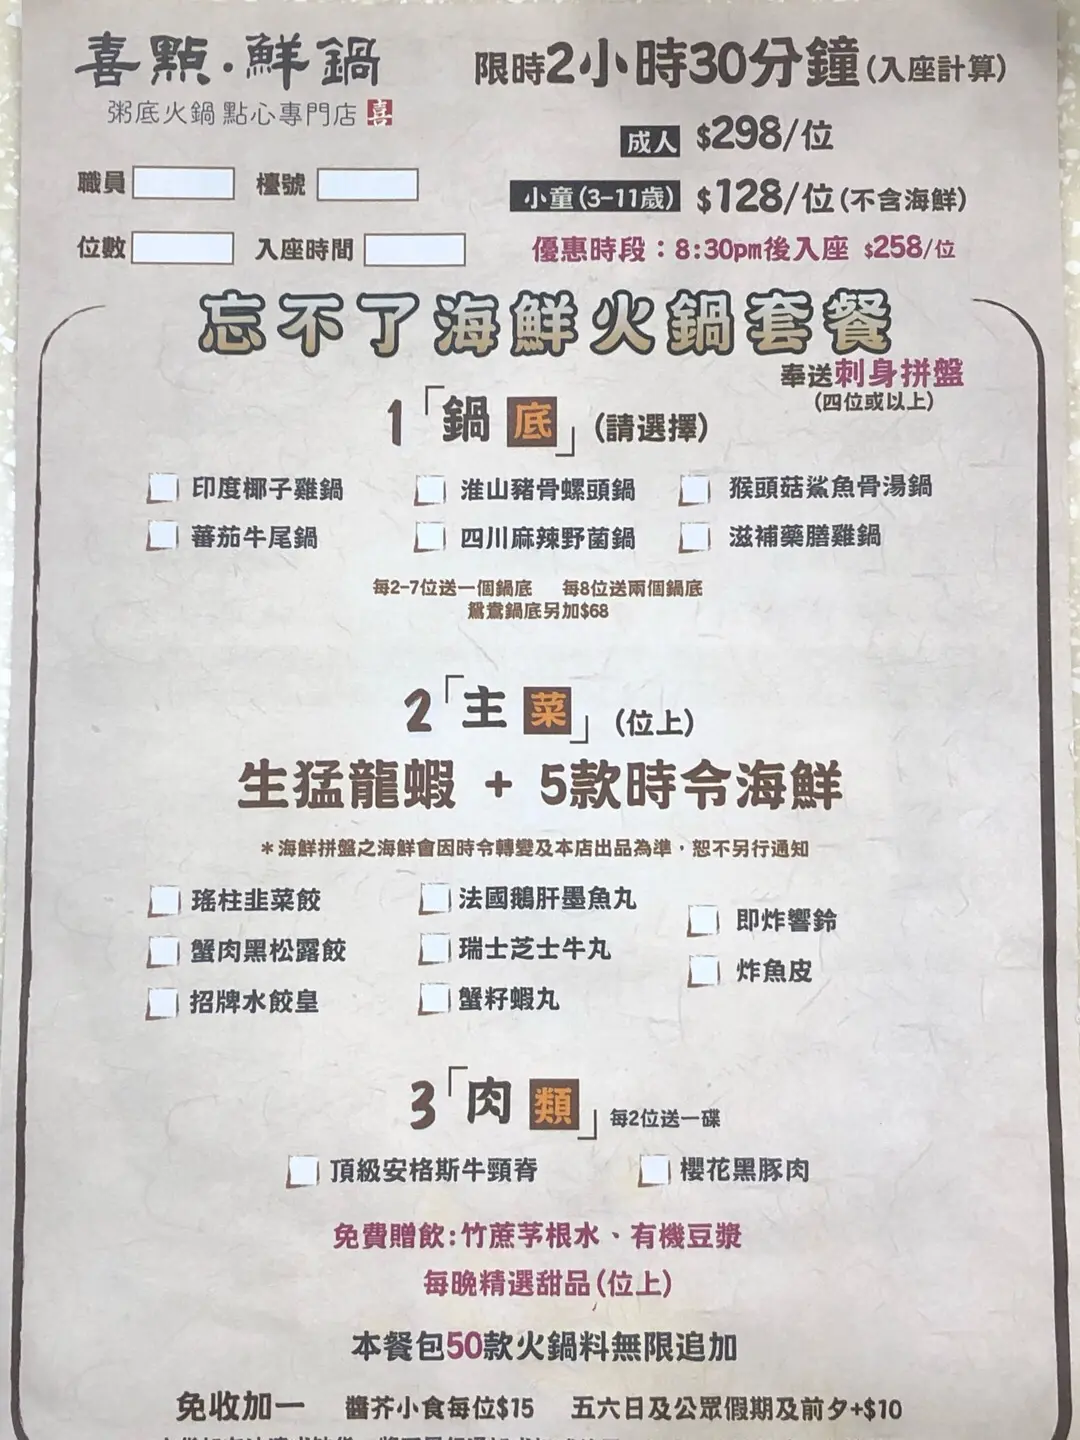 喜點·鮮鍋
粥底火鍋 點心專門店 喜
限時2小時30分鐘(入座計算)
成人 $298/位
小童(3-11歲) $128/位(不含海鮮)
優惠時段：8:30pm後入座 $258/位
職員 檯號
位數 入座時間
忘不了海鮮火鍋套餐
奉送刺身拼盤
(四位或以上)
1「鍋底」(請選擇)
印度椰子雞鍋 淮山豬骨螺頭鍋 猴頭菇鯊魚骨湯鍋
蕃茄牛尾鍋 四川麻辣野菌鍋 滋補藥膳雞鍋
每2-7位送一個鍋底 每8位送兩個鍋底
鴛鴦鍋底另加$68
2「主菜」(位上)
生猛龍蝦 + 5款時令海鮮
＊海鮮拼盤之海鮮會因時令轉變及本店出品為準，恕不另行通知
瑤柱韭菜餃 法國鵝肝墨魚丸 即炸響鈴
蟹肉黑松露餃 瑞士芝士牛丸 炸魚皮
招牌水餃皇 蟹籽蝦丸
3「肉類」每2位送一碟
頂級安格斯牛頸脊 櫻花黑豚肉
免費贈飲:竹蔗茅根水、有機豆漿
每晚精選甜品(位上)
本餐包50款火鍋料無限追加
免收加一 醬芥小食每位$15 五六日及公眾假期及前夕+$10